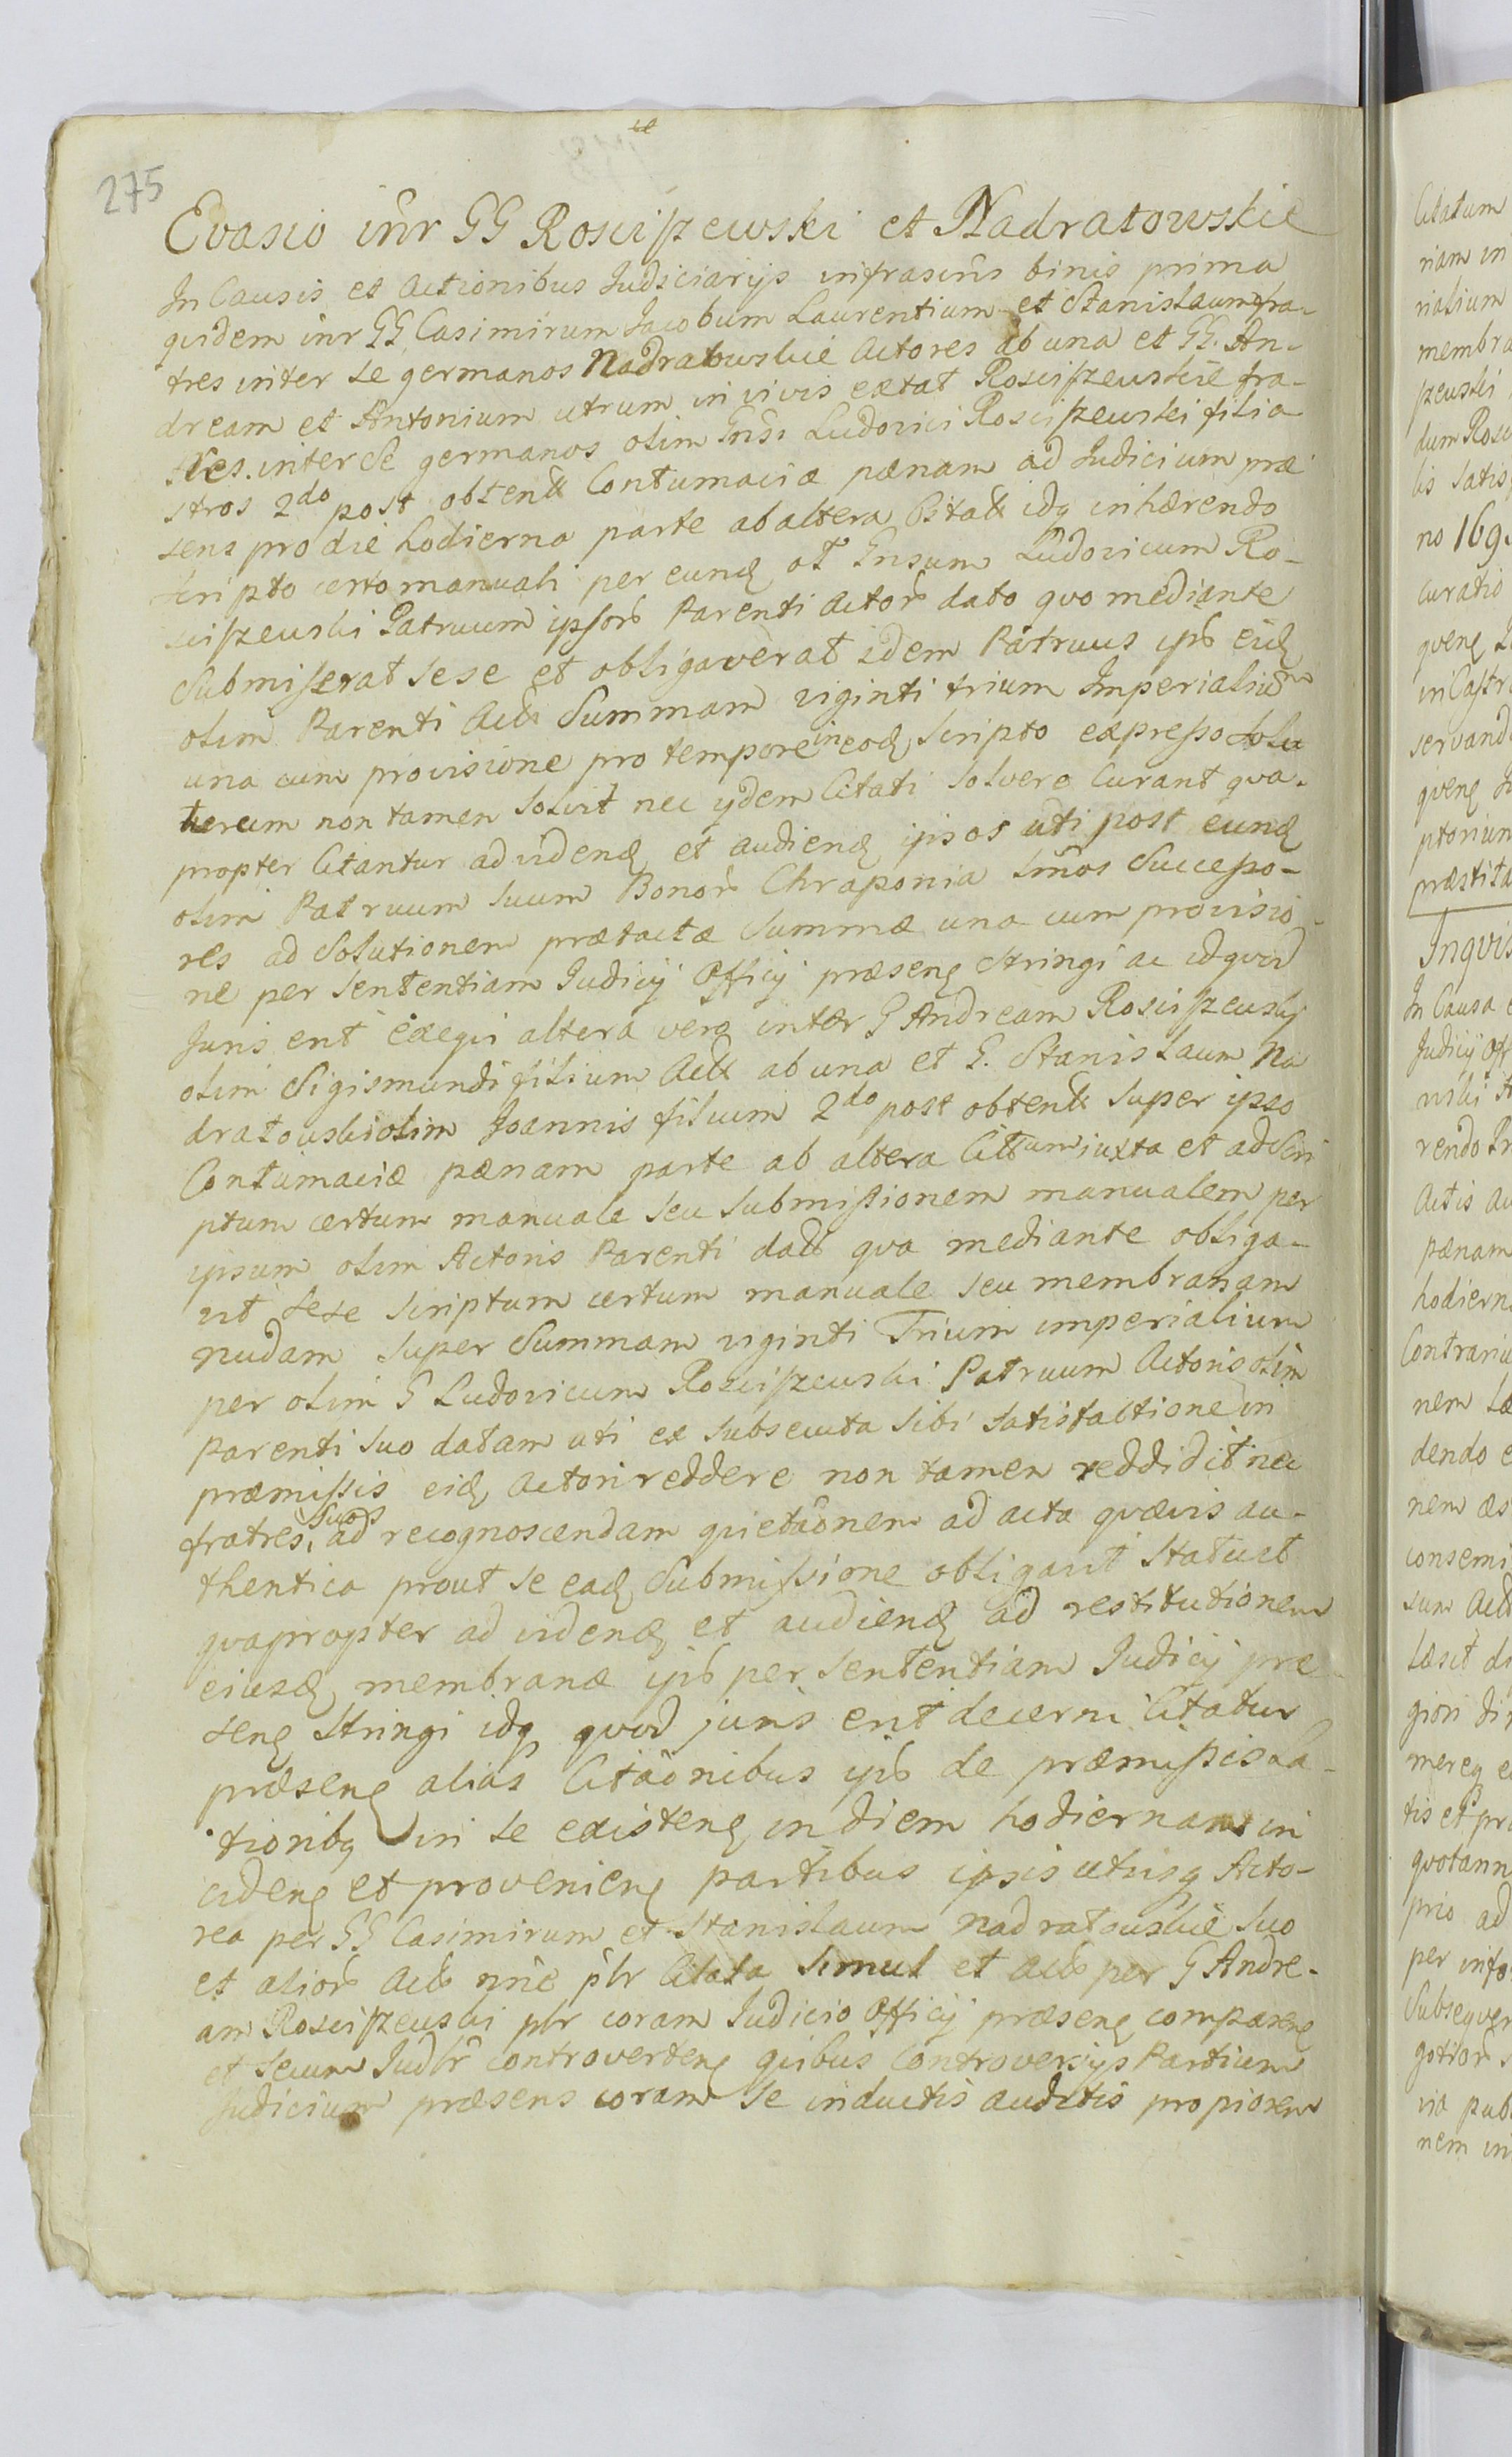 275
Evasio inr GG Rosciszewski et Nadratowskie
In Causis et Actionibus Judiciarijs infrascris binis prima
quidem inr GG Casimirum Jacobum Laurentium et Stanislaum fra-
tres inter se germanos Nadratowskie Actores ab una et GG. An-
dream et Antonium utrum in vivis extat Rosciszewskie fra-
tres inter se germanos olim Gnsi Ludovici Rosciszewski filia
stros 2do post obtent Contumaciæ pænam ad Judicium præ
sens pro die hodierna parte ab altera Citatt idq inhærendo
scripto certo manuali per eund ol Gnsum Ludovicum Ro-
sciszewski Patruum ipsor Parenti Actor dato quo mediante
submiserat sese et obligaverat idem Patruus ips eid
olim Parenti Act Summam viginti trium Imperialium
una cum provisione pro tempore in eod scripto expresso solu
turum non tamen solvit nec ijdem Citati solvere Curant qua-
propter Citantur ad vidend et audiend ipsos uti post eund
olim Patruum suum Bonor Chraponia tmos Successo-
res ad solutionem prætactæ Summæ una cum provisio-
ne per sententiam Judicij Officij præsen stringi ac id quod
Juris erit exegui altera vero inter G Andream Rosciszewski
olim Sigismundi filium Act ab una et G. Stanislaum Na
dratowski olim Joannis filium 2do post obtent super ipso
Contumaciæ pænam parte ab altera Cittum iuxta et ad Scri
ptum certum manuale seu submissionem manualem per
ipsum olim Actoris Parenti dat qua mediante obliga-
vit sese scriptum certum manuale seu membranam
nudam super Summam viginti Trium imperialium
per olim G Ludovicum Rosciszewski Patruum Actoris olim
Parenti suo datam uti ex subsecuta sibi satisfactione in
præmissis eid Actori reddere non tamen reddidit nec
fratres suos ad recognoscendam quietaonem ad acta quævis au-
thentica prout se ead Submissione obligavit statuit
quapropter ad vidend et audiend ad restitutionem
eiusd membranæ ips per sententiam Judicij præ-
sen stringi idq quod juris erit decerni Citatur
præsen alias Citaonibus ips de præmissis la-
tioribq in se existen in diem hodiernam in
ciden et provenien partibus ipsis utrisq Acto-
rea per GG Casimirum et Stanislaum Nadratowskie suo
et alior Act nne plr Citata simul et act per G Andre-
am Rosciszewski plr coram Judicio Officij præsen comparen
et secum Judlr controverten quibus Controversijs Partium
Judicium præsens coram se inductis auditis propiorem
Citatum
riam in
rialium
membra
pzewski
dum Rosci
lis satis
no 169
curatio
quen
in Castr
servand
quen
ptorium
præstita
Inquis
In Causa
Judicij Off
wski
rendo
Actis
pænam
hodiern
Contrariu
nem
dendo
nem
consemi
sum
læsit
giori
mereq
tis et pr
quotann
prio ad
per info
Subsequen
gotior
via pub
nem in